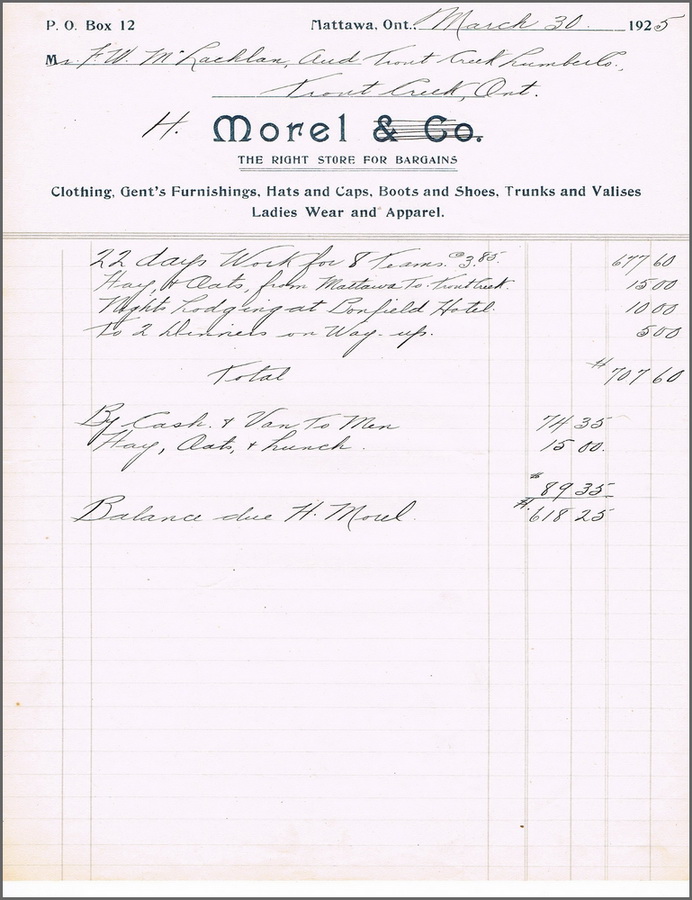 P. O. Box 12 Mattawa, Ont., March 30. 1925
Mr. F. W. McLachlan, And Trout Creek Lumber Co.,
Trout Creek, Ont.
H. Morel & Co.
THE RIGHT STORE FOR BARGAINS
Clothing, Gent's Furnishings, Hats and Caps, Boots and Shoes, Trunks and Valises
Ladies Wear and Apparel.
22 days Work for 8 Teams. @ 3.85. 677 60
Hay, & Oats, from Mattawa To Trout Creek. 15 00
Nights Lodging at Bonfield Hotel. 10 00
To 2 Dinners on Way-up. 5 00
Total $707 60
By Cash. & Van To Men 74 35
Hay, Oats, & Lunch. 15 00.
$89 35
Balance due H. Morel. $618 25